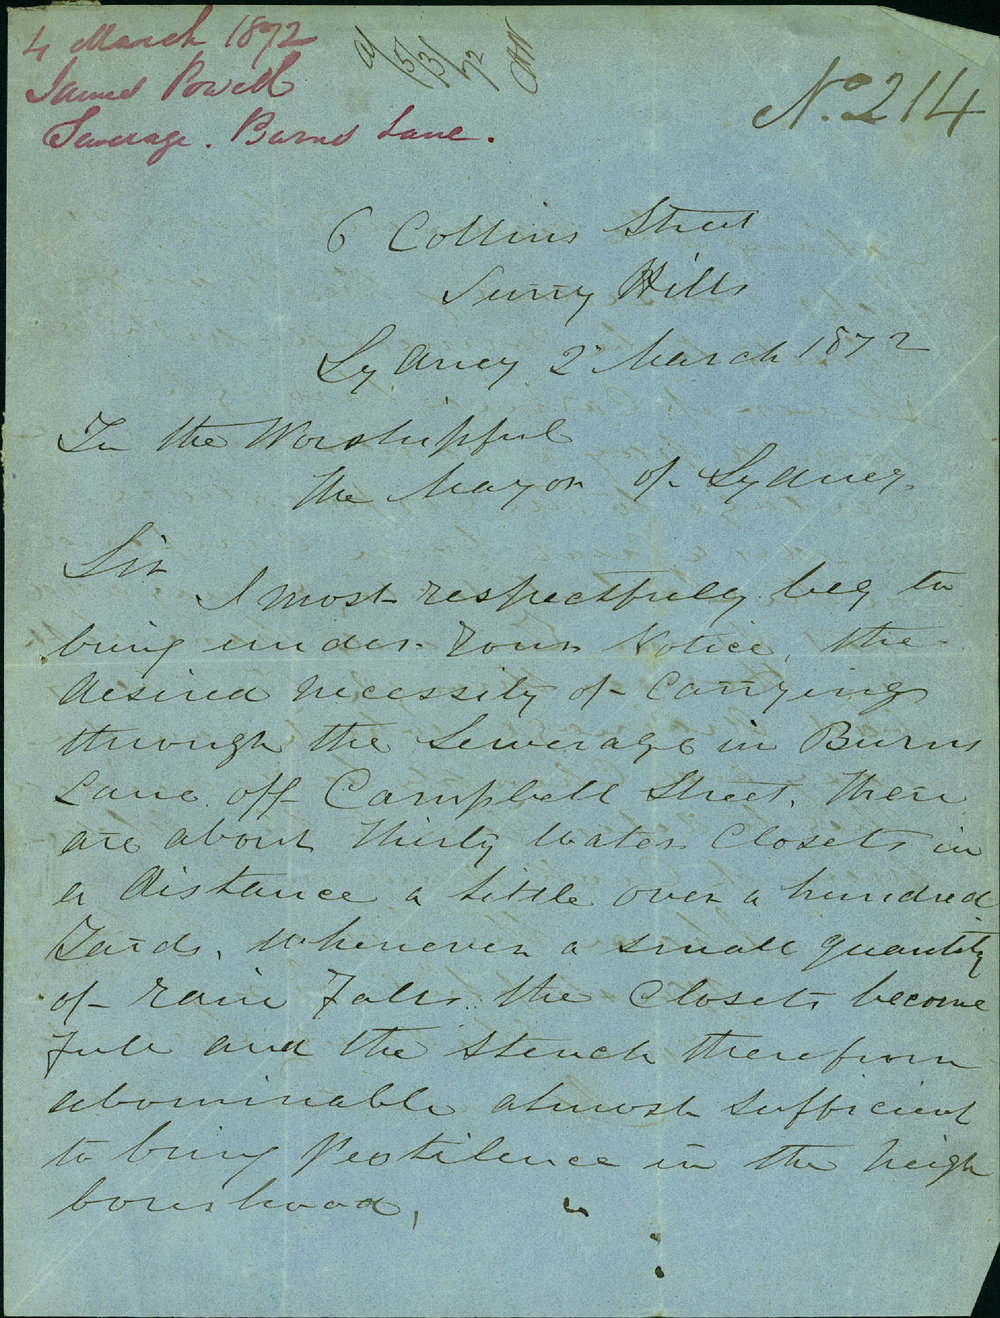 4 March 1872
James Powell
Sewerage. Burns Lane.
5/3/72
No. 214
6 Collins Street
Surry Hills
Sydney 2 March 1872
To the Worshipful
The Mayor of Sydney.
Sir
I most respectfully beg to
bring under Your Notice, the
desired necessity of Carrying
through the Sewerage in Burns
Lane off Campbell Street. There
are about Thirty Water Closets in
a distance a little over a hundred
Yards, Whenever a small quantity
of rain Falls the Closets become
Full and the stench therefrom
abominable almost sufficient
to bring Pestilence in the Neigh
bourhood,